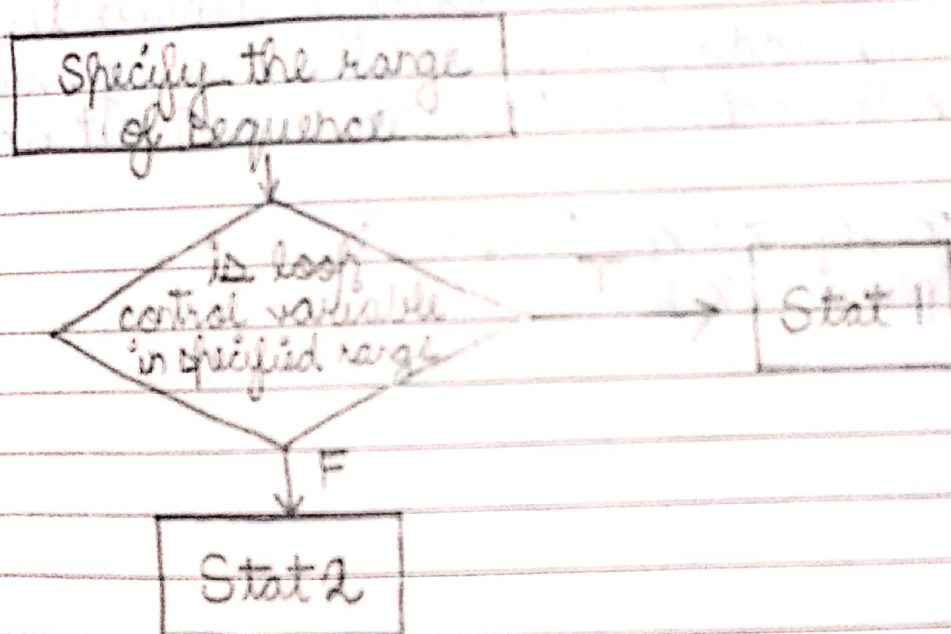 Specify the range
of sequence
is loop
control variable
in specified range
T
Stat 1
F
Stat 2